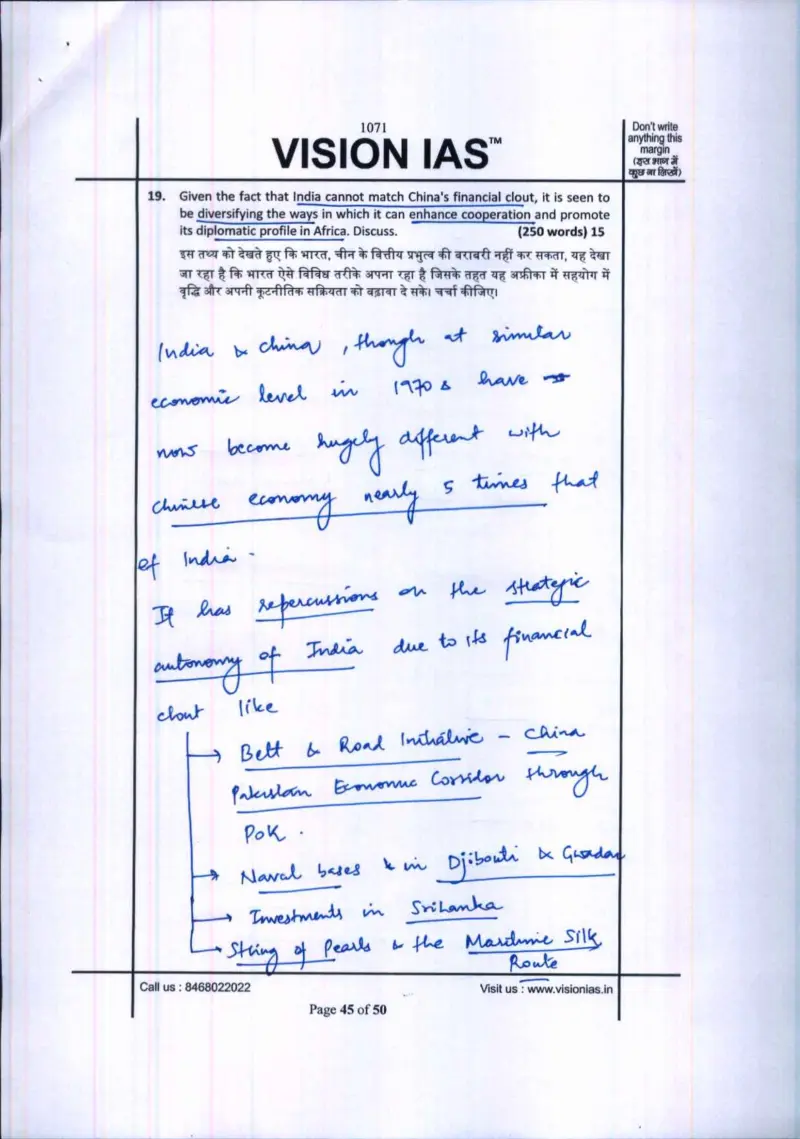 1071
VISION IAS™
Don't write
anything this
margin
(इस भाग में
कुछ ना लिखें)
19. Given the fact that India cannot match China's financial clout, it is seen to
be diversifying the ways in which it can enhance cooperation and promote
its diplomatic profile in Africa. Discuss. (250 words) 15
इस तथ्य को देखते हुए कि भारत, चीन के वित्तीय प्रभुत्व की बराबरी नहीं कर सकता, यह देखा
जा रहा है कि भारत ऐसे विविध तरीके अपना रहा है जिसके तहत यह अफ्रीका में सहयोग में
वृद्धि और अपनी कूटनीतिक सक्रियता को बढ़ावा दे सके। चर्चा कीजिए।
India & china, though at similar
economic level in 1970s have
now become hugely different with
chinese economy nearly 5 times that
of India.
It has repercussions on the strategic
autonomy of India due to its financial
clout like
→ Belt & Road Initiative - China
Pakistan Economic Corridor through
POK.
→ Naval bases in Djibouti & Gwadar
→ Investments in SriLanka
→ String of Pearls & the Maritime Silk
Route
Call us : 8468022022
Visit us : www.visionias.in
Page 45 of 50